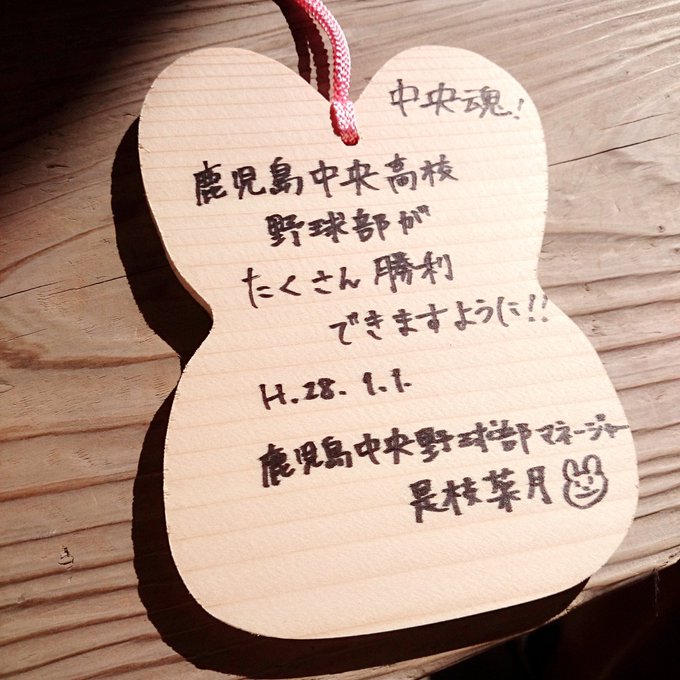 中央魂!
鹿児島中央高校
野球部が
たくさん勝利
できますように!!
H.28.1.1.
鹿児島中央野球部マネージャー
是枝菜月